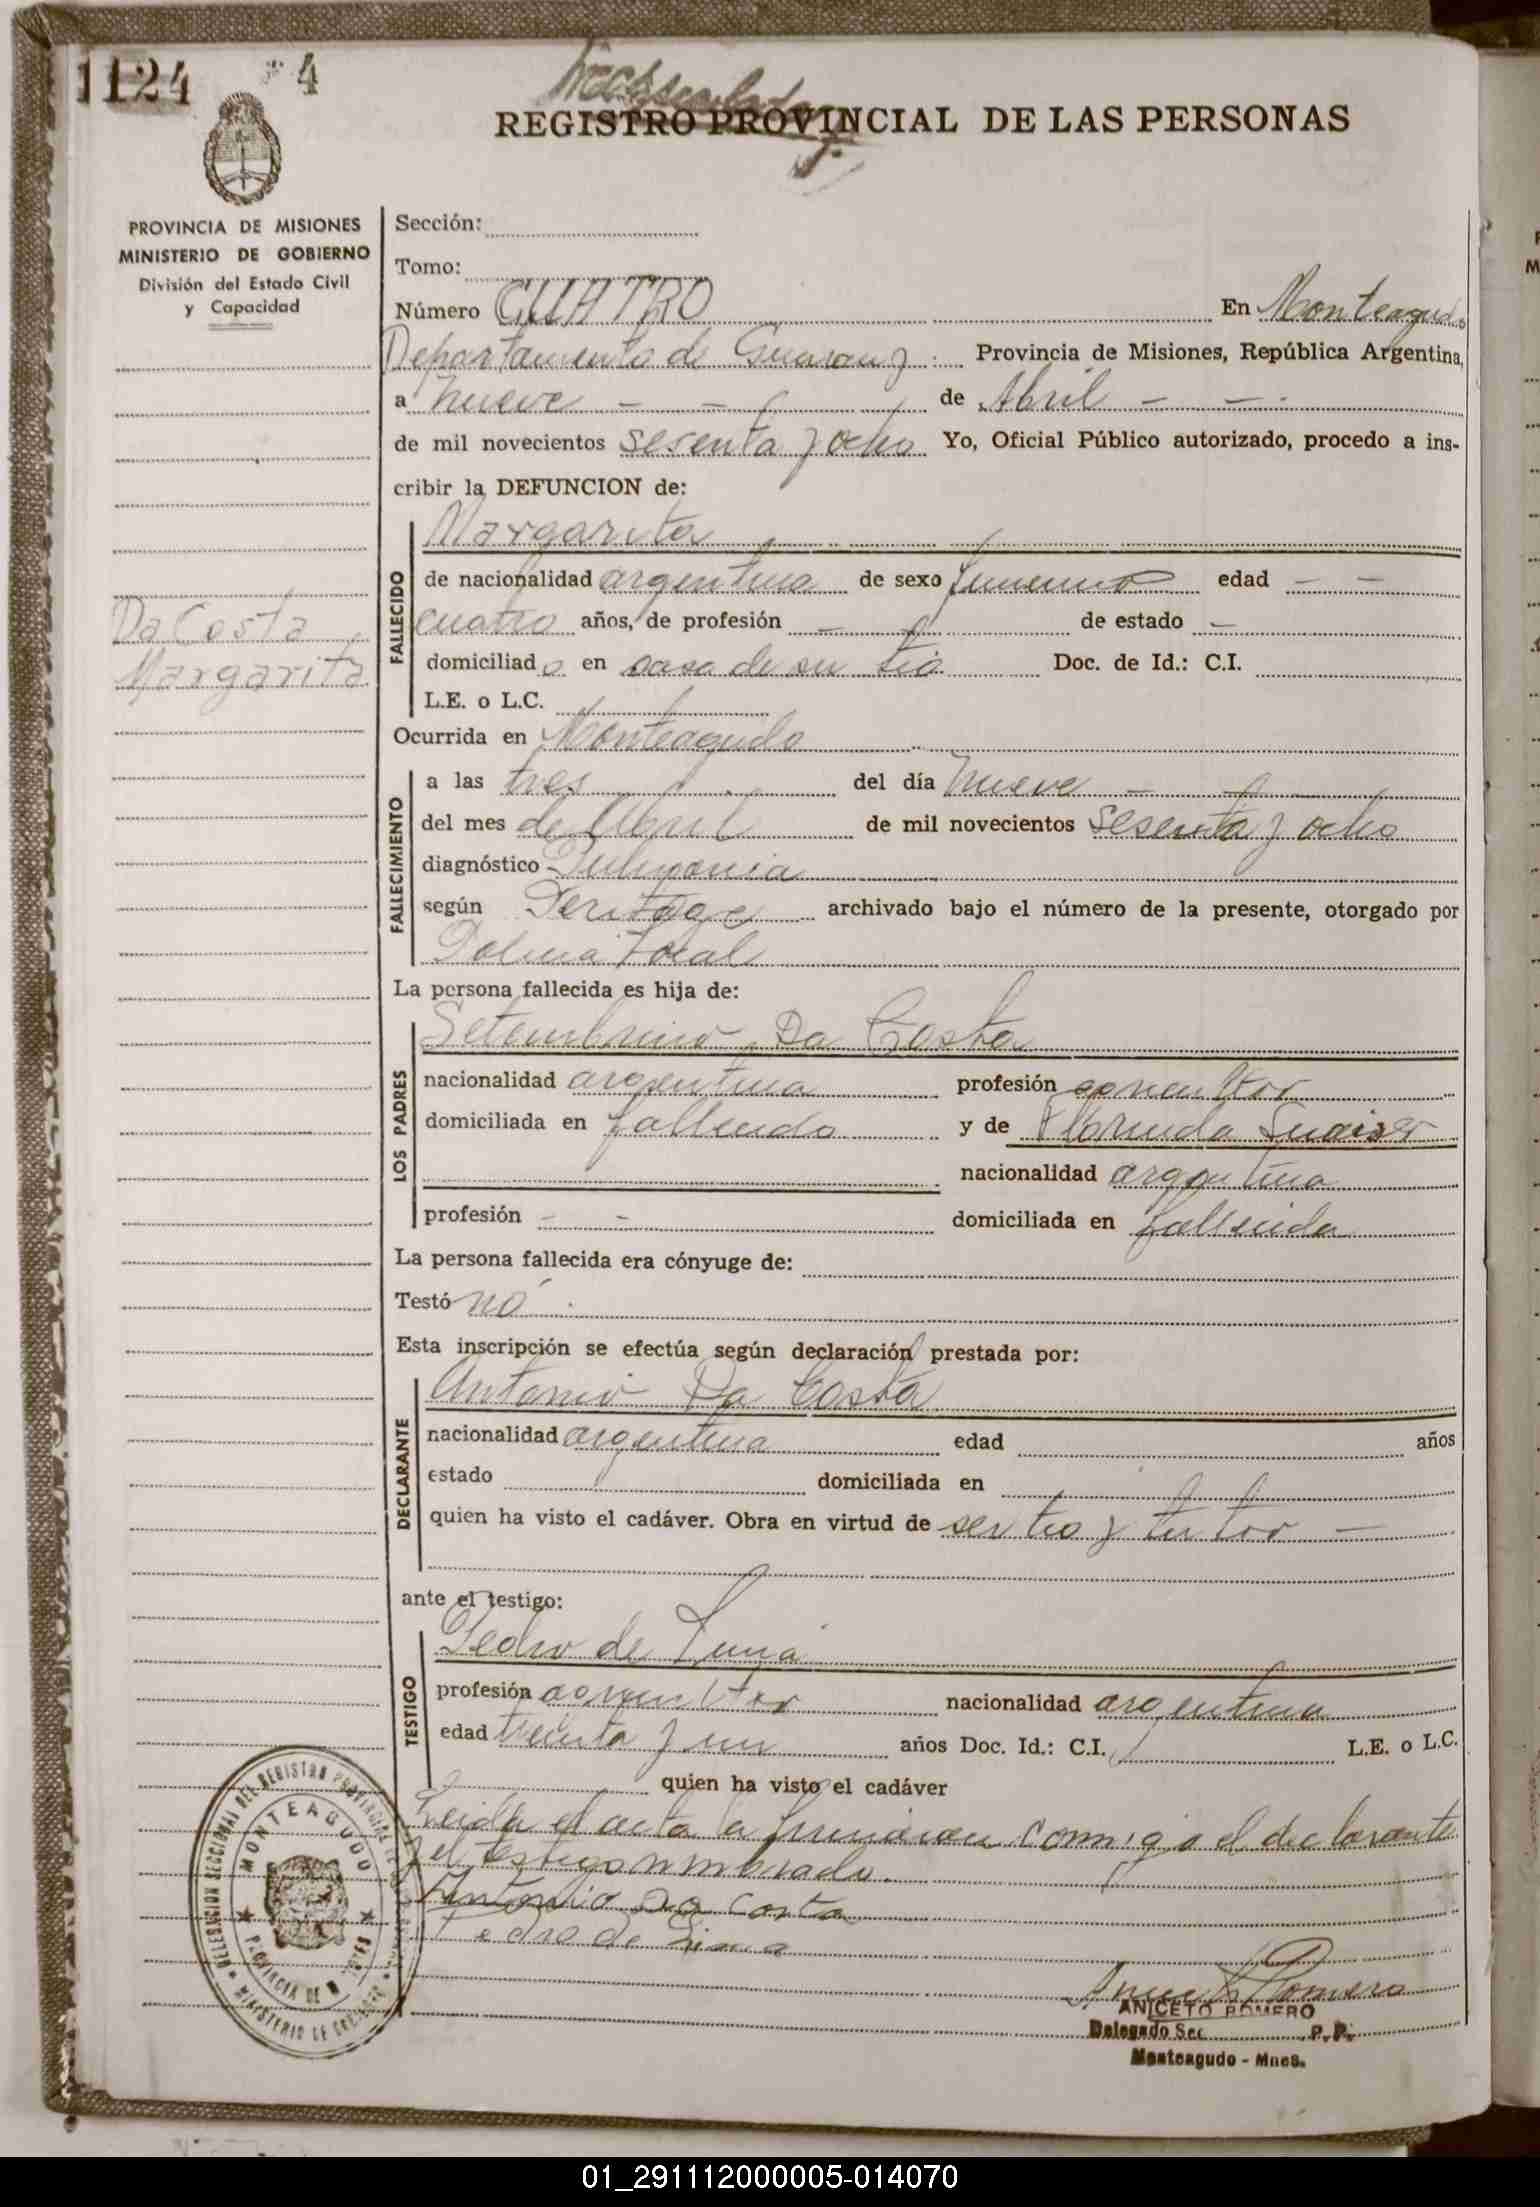 1124
4
REGISTRO PROVINCIAL DE LAS PERSONAS
PROVINCIA DE MISIONES
MINISTERIO DE GOBIERNO
División del Estado Civil
y Capacidad
Sección:
Tomo:
Número CUATRO En Monteagudo
Departamento de Guarany Provincia de Misiones, República Argentina,
a nueve - - de Abril - -
de mil novecientos sesenta y ocho Yo, Oficial Público autorizado, procedo a ins-
cribir la DEFUNCION de:
Da Costa
Margarita
FALLECIDO
Margarita
de nacionalidad argentina de sexo femenino edad - -
cuatro años, de profesión - - de estado -
domiciliado en casa de su tio Doc. de Id.: C.I.
L.E. o L.C.
Ocurrida en Monteagudo
FALLECIMIENTO
a las tres del día nueve - -
del mes de Abril de mil novecientos sesenta y ocho
diagnóstico Pulmonia
según Peritage archivado bajo el número de la presente, otorgado por
Policia local
La persona fallecida es hija de:
LOS PADRES
Setembrino Da Costa
nacionalidad argentina profesión agricultor
domiciliada en fallecido y de Florinda
nacionalidad argentina
profesión - - domiciliada en fallecida
La persona fallecida era cónyuge de:
Testó no
Esta inscripción se efectúa según declaración prestada por:
DECLARANTE
Antonio Da Costa
nacionalidad argentina edad años
estado domiciliada en
quien ha visto el cadáver. Obra en virtud de ser tio y tutor -
ante el testigo:
TESTIGO
Pedro de Lima
profesión agricultor nacionalidad argentina
edad treinta y un años Doc. Id.: C.I. L.E. o L.C.
quien ha visto el cadáver
Leida el acta la firmaran conmigo el declarante
y el testigo nombrado.
Antonio Da Costa
Pedro de Lima
Aniceto Romero
ANICETO ROMERO
Delegado Sec. R.P.P.
Monteagudo - Mnes.
DELEGACION SECCIONAL DEL REGISTRO PROVINCIAL DE
MONTEAGUDO
PROVINCIA DE MISIONES
MINISTERIO DE GOBIERNO
01_291112000005-014070